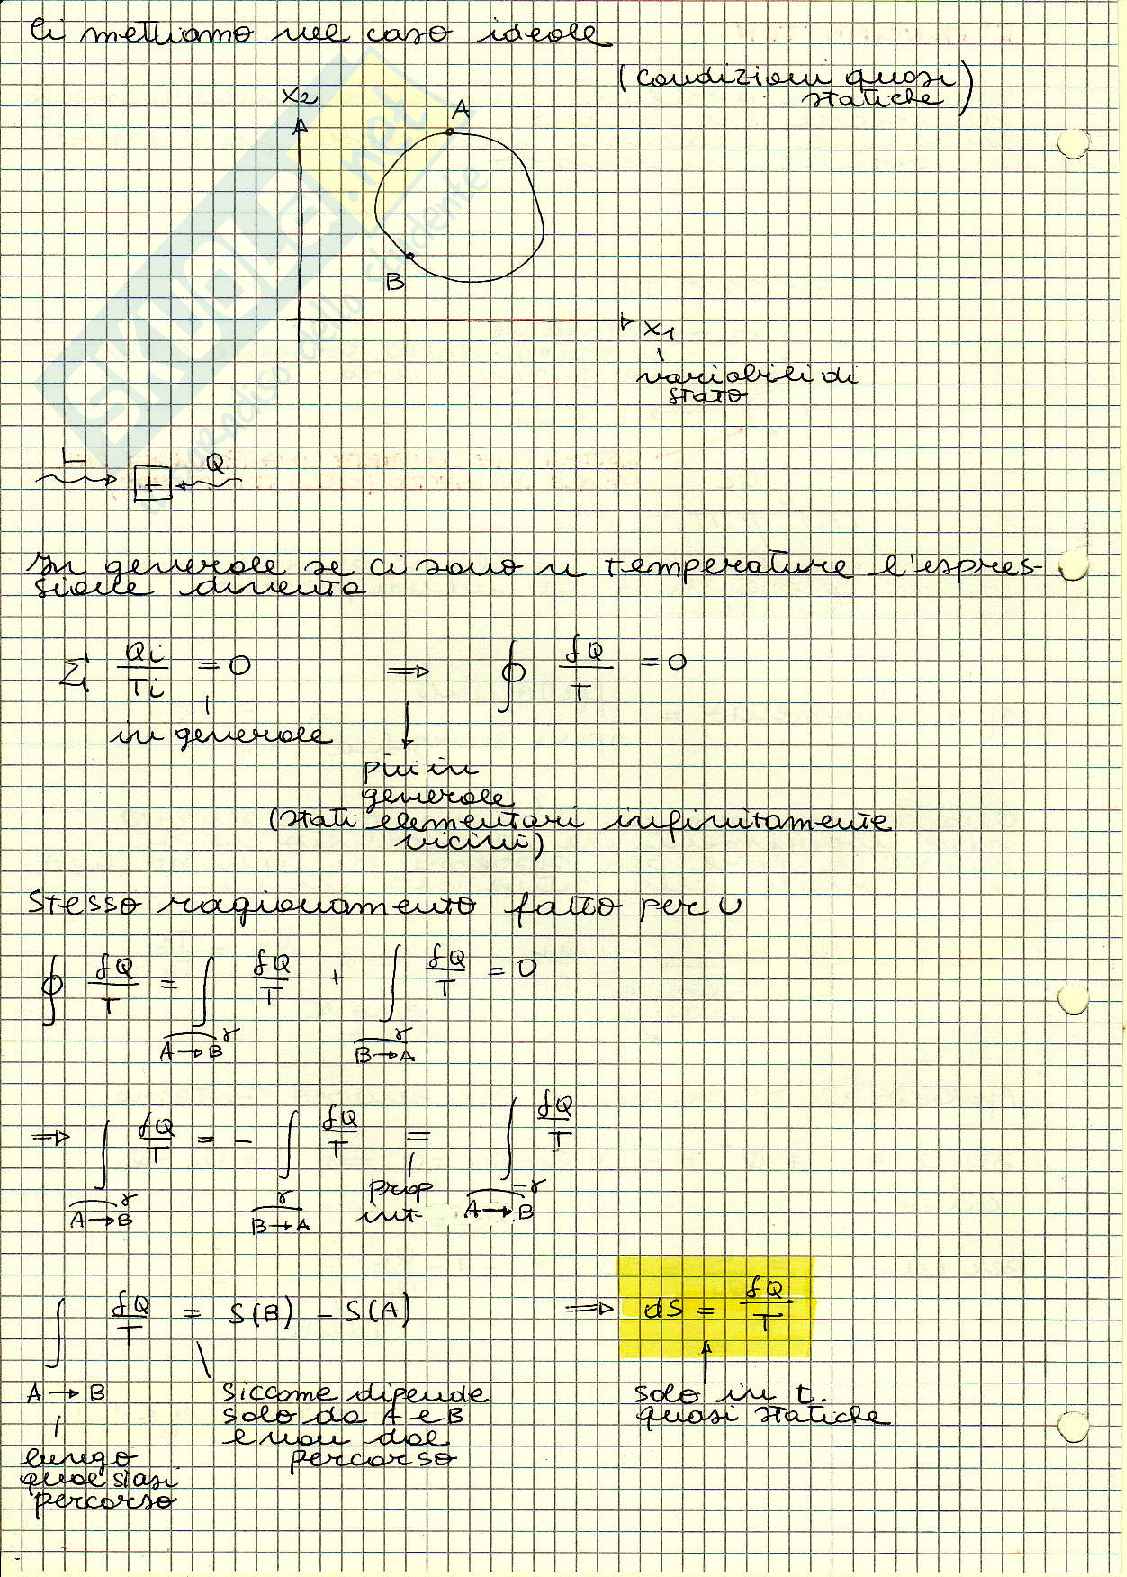 Ci mettiamo nel caso ideale
(condizioni quasi
statiche)
X2
A
B
X1
variabili di
stato
L
Q
+
In generale se ci sono n temperature l'espres-
sione diventa
Σ Qi/Ti = 0 ⇒ ∮ δQ/T = 0
in generale
più in
generale
(stati elementari infinitamente
vicini)
Stesso ragionamento fatto per U
∮ δQ/T = ∫ δQ/T + ∫ δQ/T = 0
A→B γ B→A γ
⇒ ∫ δQ/T = - ∫ δQ/T = ∫ δQ/T
A→B γ B→A γ prop int. A→B -γ
∫ δQ/T = S(B) - S(A) ⇒ dS = δQ/T
A→B
lungo
qualsiasi
percorso
siccome dipende
solo da A e B
e non dal
percorso
solo in t.
quasi statiche
SKUOLA.net